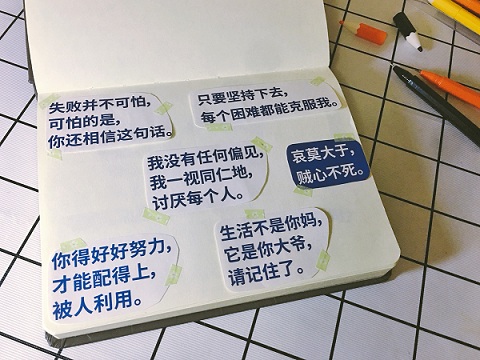 失败并不可怕，
可怕的是，
你还相信这句话。
只要坚持下去，
每个困难都能克服我。
我没有任何偏见，
我一视同仁地，
讨厌每个人。
哀莫大于，
贼心不死。
你得好好努力，
才能配得上，
被人利用。
生活不是你妈，
它是你大爷，
请记住了。